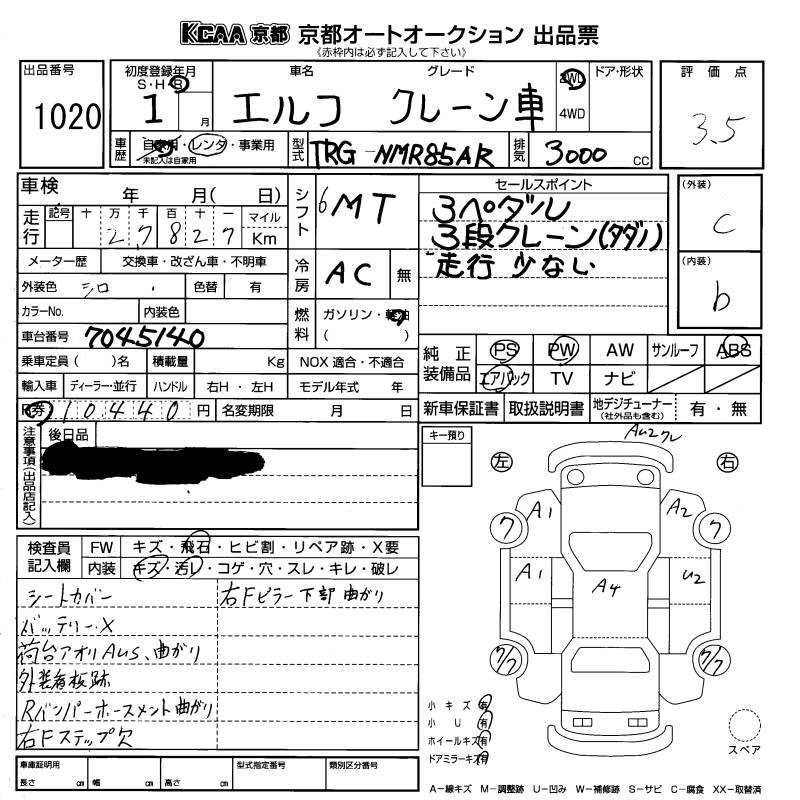 KCAA 京都 京都オートオークション 出品票
《赤枠内は必ず記入して下さい》
出品番号 初度登録年月 車名 グレード 2WD ドア・形状 評価点
S・H・R
1020 1 月 エルフ クレーン車 4WD 3.5
車歴 自家用・レンタ・事業用 型式 TRG-NMR85AR 排気 3000 CC
未記入は自家用
車検 年 月( 日) シフト 6MT セールスポイント (外装)
走行 記号 十 万 千 百 十 一 マイル 3ペダル C
27827 Km 3段クレーン(タダノ)
メーター歴 交換車・改ざん車・不明車 冷房 AC 無 走行 少ない (内装)
外装色 シロ 色替 有 b
カラーNo. 内装色 燃料 ガソリン・軽油
車台番号 7045140 ( )
乗車定員( )名 積載量 Kg NOX 適合・不適合 純正装備品 PS PW AW サンルーフ ABS
輸入車 ディーラー・並行 ハンドル 右H・左H モデル年式 年 エアバック TV ナビ
R券 10440 円 名変期限 月 日 新車保証書 取扱説明書 地デジチューナー 有・無
(社外品も含む)
注意事項(出品店記入) 後日品 キー預り
AU2クレ
左 右
A1 A2
ワ ワ
A1 A4 U2
ワ/ワ ワ/ワ
検査員記入欄 FW キズ・飛石・ヒビ割・リペア跡・X要
内装 キズ・汚レ・コゲ・穴・スレ・キレ・破レ
シートカバー 右Fピラー下部 曲がり
バッテリーX
荷台アオリAUS、曲がり
外装看板跡
Rバンパーホースメント曲がり
右Fステップ欠
小キズ 有
小U 有
ホイールキズ 有
ドアミラーキズ 有
スペア
車庫証明用 型式指定番号 類別区分番号
長さ cm 幅 cm 高さ cm
A−線キズ M−調整跡 U−凹み W−補修跡 S−サビ C−腐食 XX−取替済